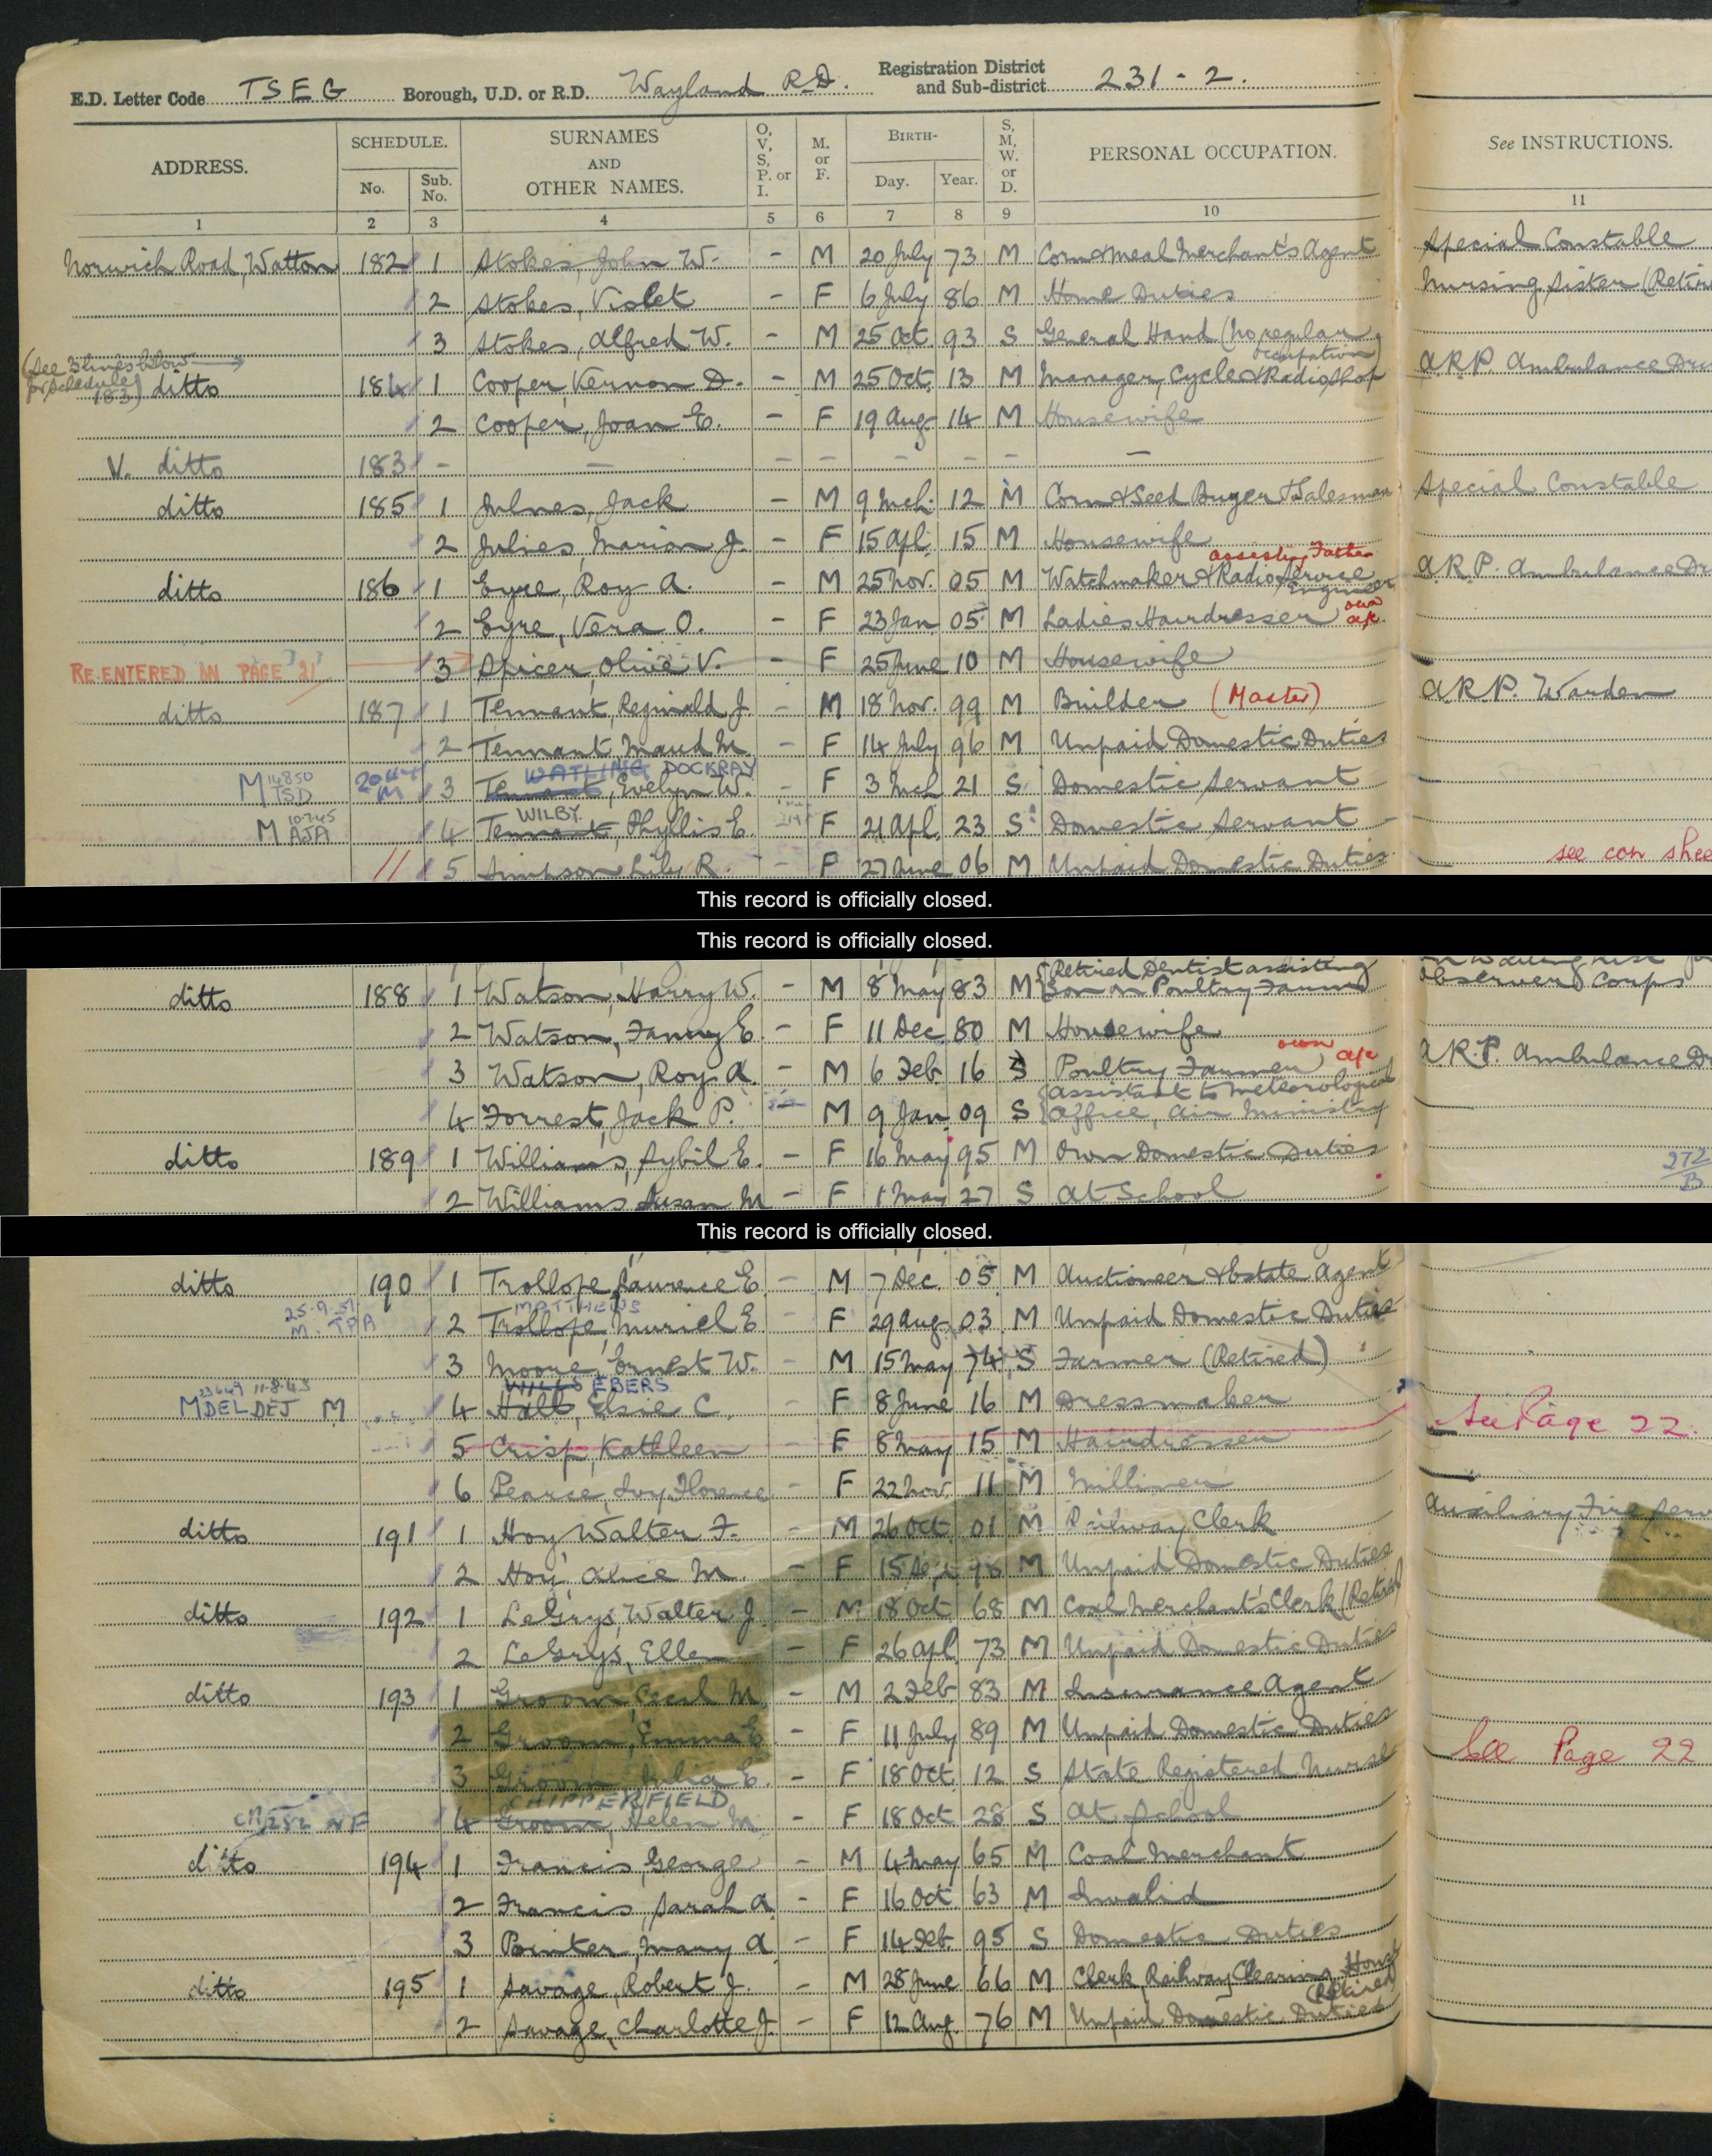 E.D. Letter Code TSEG Borough, U.D. or R.D. Wayland R.D. Registration District and Sub-district 231-2.
ADDRESS. SCHEDULE. No. Sub. No. SURNAMES AND OTHER NAMES. O, V, S, P. or I. M. or F. BIRTH- Day. Year. S, M, W. or D. PERSONAL OCCUPATION. See INSTRUCTIONS.
1 2 3 4 5 6 7 8 9 10 11
Norwich Road, Watton 182 1 Stokes, John W. - M 20 July 73 M Corn & Meal Merchant's Agent Special Constable
2 Stokes, Violet - F 6 July 86 M Home Duties Nursing Sister (Retire
3 Stokes, Alfred W. - M 25 Oct 93 S General Hand (no regular occupation)
(See 3 lines below for schedule 183) ditto 184 1 Cooper, Vernon D. - M 25 Oct. 13 M Manager, Cycle & Radio Shop A.R.P. Ambulance Dri
2 Cooper, Joan E. - F 19 Aug 14 M Housewife
V. ditto 183 - - - - - - - -
ditto 185 1 Julnes, Jack - M 9 Mch. 12 M Corn & Seed Buyer & Salesman Special Constable
2 Julnes, Marion J. - F 15 Apl. 15 M Housewife
ditto 186 1 Eyre, Roy A. - M 25 Nov. 05 M Watchmaker & Radio Service Engineer assisting Father A.R.P. Ambulance Dr
2 Eyre, Vera O. - F 23 Jan 05 M Ladies Hairdresser own a/c.
RE-ENTERED ON PAGE 21 3 Spicer, Olive V. - F 25 June 10 M Housewife
ditto 187 1 Tennant, Reginald J. - M 18 Nov. 99 M Builder (Master) A.R.P. Warden
2 Tennant, Maud M. - F 14 July 96 M Unpaid Domestic Duties
WATLING DOCKRAY
M 14850 TSD M 3 Tennant, Evelyn W. - F 3 Mch 21 S Domestic Servant
WILBY.
M 10.7.45 AJA 4 Tennant, Phyllis E. - F 21 Apl. 23 S Domestic Servant
11 5 Simpson Lily R. - F 27 June 06 M Unpaid Domestic Duties see con shee
This record is officially closed.
This record is officially closed.
ditto 188 1 Watson, Harry W. - M 8 May 83 M Retired Dentist assisting Son on Poultry Farm Observer Corps
2 Watson, Fanny E. - F 11 Dec 80 M Housewife
3 Watson, Roy A. - M 6 Feb 16 S Poultry Farmer own a/c A.R.P. Ambulance D
4 Forrest, Jack P. - M 9 Jan. 09 S Assistant to Meteorological Office, Air Ministry
ditto 189 1 Williams, Sybil E. - F 16 May 95 M Own Domestic Duties
272 B
2 Williams Susan M - F 1 May 27 S At School
This record is officially closed.
ditto 190 1 Trollope, Laurence E. - M 7 Dec. 05 M Auctioneer & Estate Agent
MATTHEWS
25.9.51 M. TPA 2 Trollope, Muriel E. F 29 Aug. 03 M Unpaid Domestic Duties
3 Moore, Ernest W. - M 15 May 74 S Farmer (Retired)
WILLS EBERS
M 23649 DEL 11.8.43 DEJ M 4 Hall, Elsie C. - F 8 June 16 M Dressmaker
5 Crisp, Kathleen - F 8 May 15 M Hairdresser See Page 22.
6 Pearce, Ivy Florence - F 22 Nov. 11 M Milliner
ditto 191 1 Hoy Walter F. - M 26 Oct 01 M Railway Clerk Auxiliary Fire Serv
2 Hoy, Alice M. - F 15 98 M Unpaid Domestic Duties
ditto 192 1 LeGrys, Walter J. - M 18 Oct 68 M Coal Merchant's Clerk (Retired
2 LeGrys, Ellen - F 26 Apl. 73 M Unpaid Domestic Duties
ditto 193 1 Groom, Cecil M. - M 2 Feb 83 M Insurance Agent
2 Groom, Emma E. - F 11 July 89 M Unpaid Domestic Duties
3 Groom, Julia E. - F 18 Oct. 12 S State Registered Nurse See Page 22
CHIPPERFIELD
4 Groom, Helen M. - F 18 Oct 28 S At School
ditto 194 1 Francis, George - M 4 May 65 M Coal Merchant
2 Francis, Sarah A. - F 16 Oct 63 M Invalid
3 Binter, Mary A. - F 14 Feb. 95 S Domestic Duties
ditto 195 1 Savage, Robert J. - M 28 June 66 M Clerk, Railway Clearing House (Retired
2 Savage, Charlotte J. - F 12 Aug. 76 M Unpaid Domestic Duties